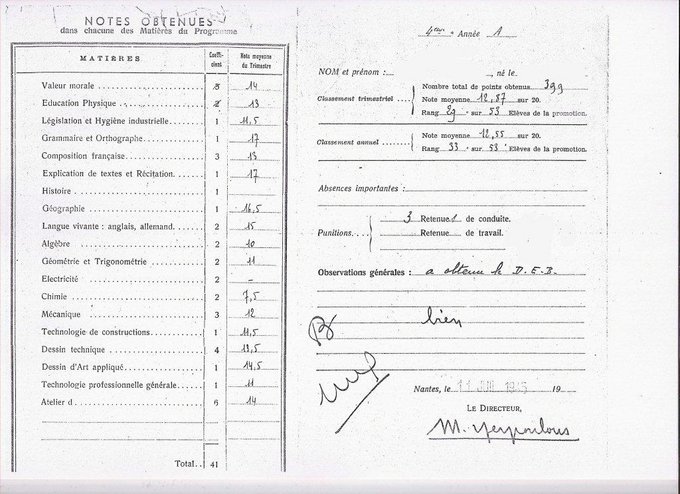 NOTES OBTENUES
dans chacune des Matières du Programme
MATIÈRES
Coefficient
Note moyenne du Trimestre
Valeur morale 14
Education Physique 13
Législation et Hygiène industrielle. 1 11,5
Grammaire et Orthographe. 1 17
Composition française. 3 13
Explication de textes et Récitation. 1 17
Histoire 1
Géographie 1 16,5
Langue vivante : anglais, allemand. 2 15
Algèbre 2 10
Géométrie et Trigonométrie 2 11
Electricité 2 -
Chimie 2 7,5
Mécanique 3 12
Technologie de constructions. 1 11,5
Dessin technique 4 13,5
Dessin d'Art appliqué. 1 14,5
Technologie professionnelle générale. 1 11
Atelier d 6 14
Total.. 41
4ème Année A
NOM et prénom : , né le
Classement trimestriel
Nombre total de points obtenus 399
Note moyenne 12,87 sur 20.
Rang 29 sur 53 Elèves de la promotion.
Classement annuel
Note moyenne 12,55 sur 20.
Rang 33 sur 53 Elèves de la promotion.
Absences importantes :
Punitions
3 Retenues de conduite.
Retenue de travail.
Observations générales : a obtenu le D.E.B.
bien
Nantes, le 11 JUI 19
LE DIRECTEUR,